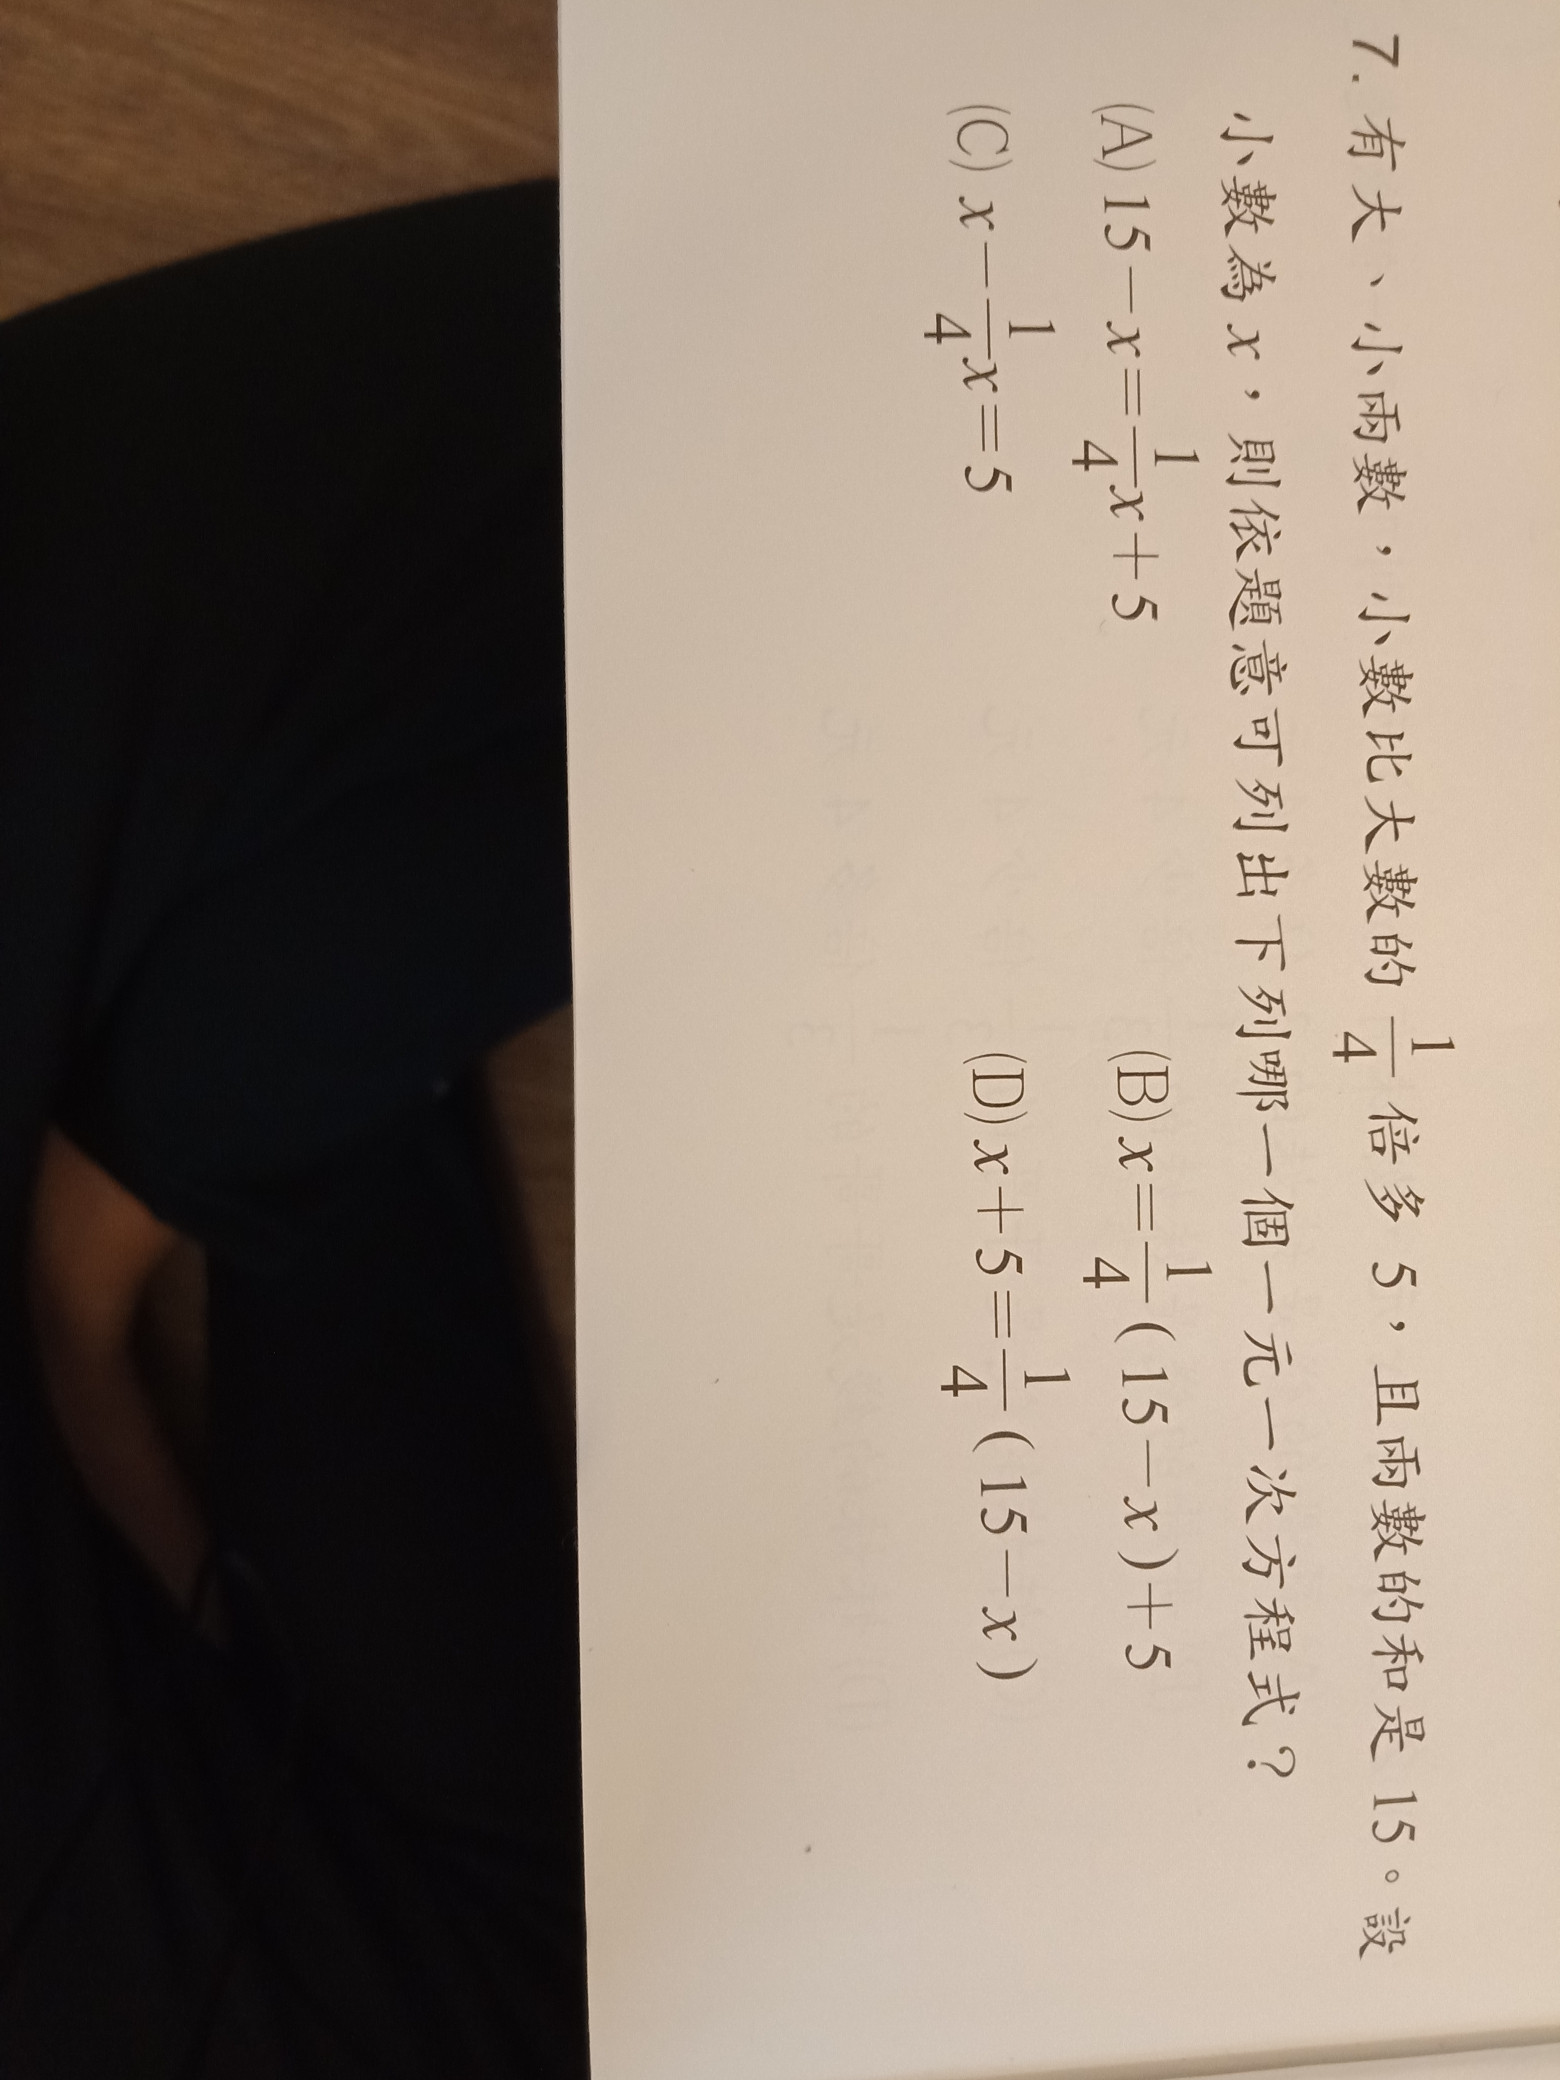 7. 有大、小兩數，小數比大數的 1/4 倍多 5，且兩數的和是 15。設
小數為 x，則依題意可列出下列哪一個一元一次方程式？
(A) 15－x＝1/4x＋5 (B) x＝1/4(15－x)＋5
(C) x－1/4x＝5 (D) x＋5＝1/4(15－x)